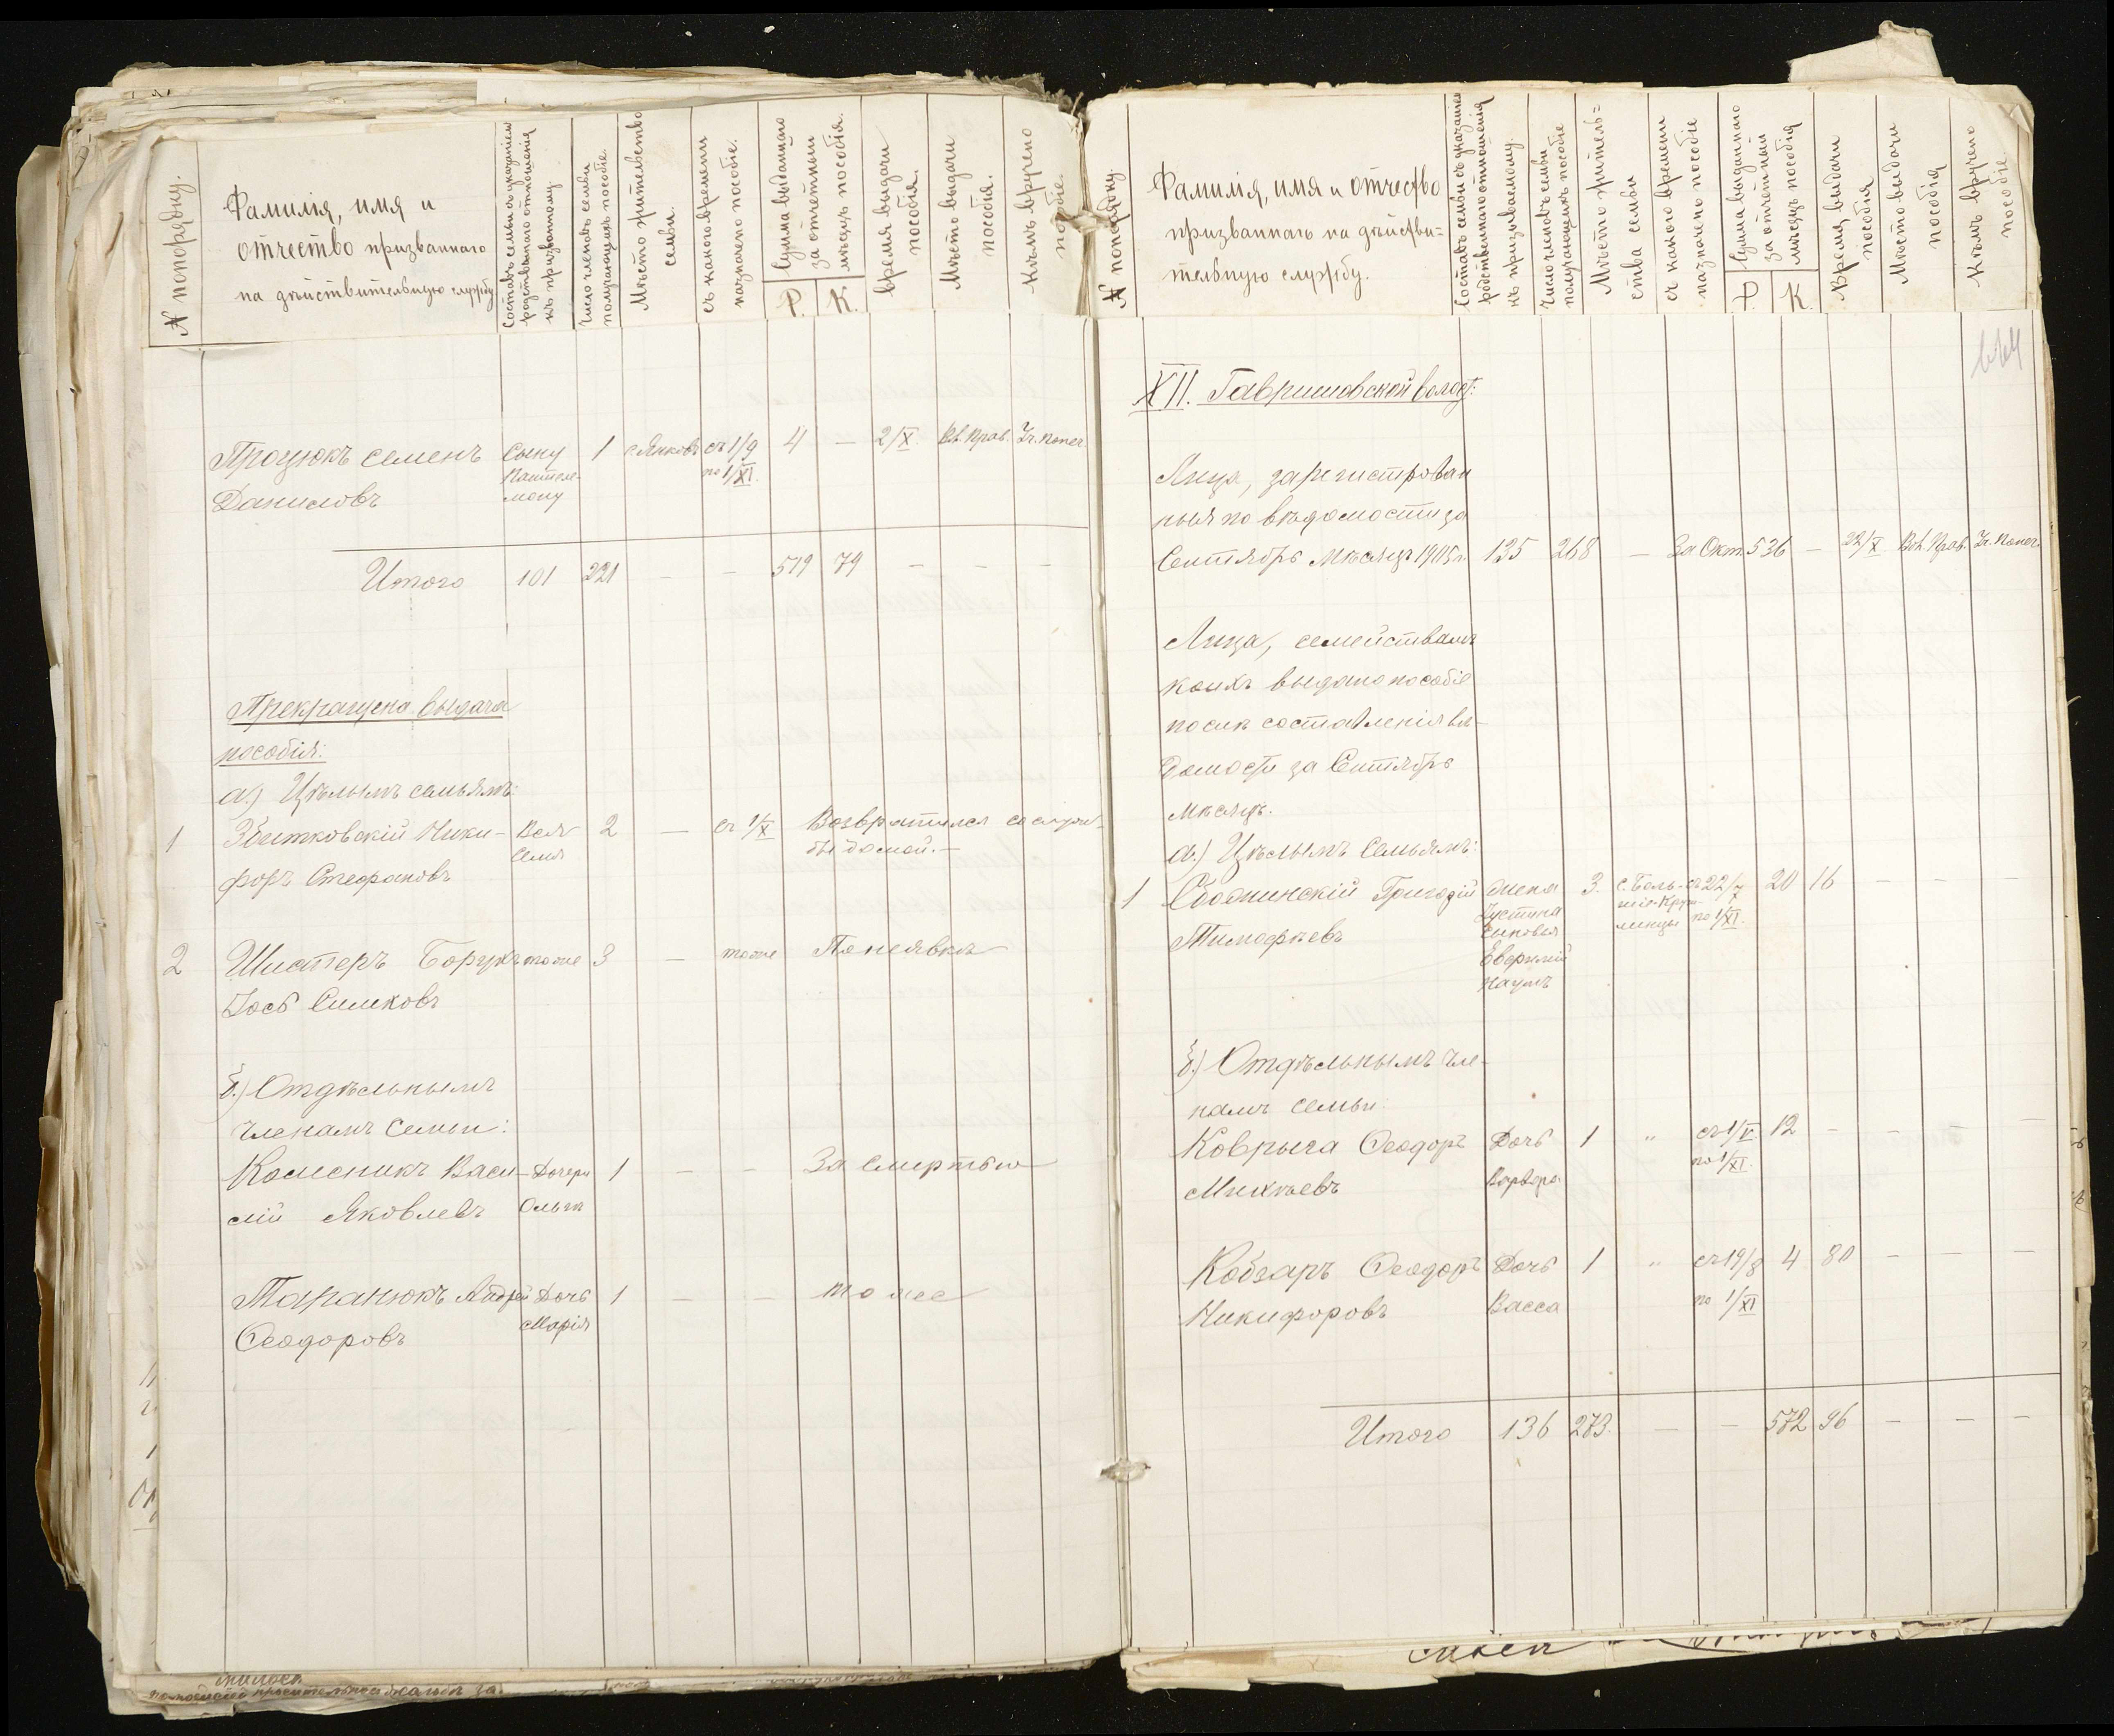 № попорядку.
Фамилія, имя и
отчество призваннаго
на дѣйствительную службу
Составъ семьи съ указаніемъ
родственнаго отношенія
къ призванному.
Число членовъ семьи
получающихъ пособіе.
Мѣсто жительство
семьи.
Съ какого времени
назначено пособіе.
Сумма выданнаго
за отчетный
мѣсяцъ пособія.
Р. К.
Время выдачи
пособія.
Мѣсто выдачи
пособія.
Кѣмъ вручено
пособіе.
Процюкъ Семенъ Сыну 1 с. Янковъ съ 1/9 4 — 2/X. Вл. Прав. Уч. Попеч.
Пантеле- по 1/XI.
Даниловъ мону
Итого 101 221 — — 519 79 — — —
Прекращена выдача
пособія:
а.) Цѣлымъ семьямъ:
1 Збитковскій Ники- Вся 2 — съ 1/X Возвратился со служ-
семья бы домой. —
форъ Стефановъ
2 Шистеръ Борухъ тоже 3 — тоже По неявкѣ
Іось Симховъ
б.) Отдѣльнымъ
членамъ семьи:
Колесникъ Васи- Дочери 1 — — За смертью
лій Яковлевъ Ольга
Таранюкъ Андрей Дочь 1 — — тоже
Марія
Ѳеодоровъ
№ попорядку
Фамилія, имя и отчество
призваннаго на дѣйстви=
тельную службу.
Составъ семьи съ указаніемъ
родственнаго отношенія
къ призываемому.
Число членовъ семьи
получающихъ пособіе
Мѣсто житель=
ства семьи
съ какого времени
назначено пособіе
Сумма выданнаго
за отчетный
мѣсяцъ пособія
Р. К.
Время выдачи
пособія
Мѣсто выдачи
пособія
Кѣмъ вручено
пособіе.
XII. Гавришовской волост:
Лица, зарегистрован
ныя по вѣдомости за
Сентябрь Мѣсяцъ 1905 г. 135 268 — За Окт. 536 — 22/X Вол. Прав. Уч. Попеч.
Лица, семействамъ
коихъ выдано пособіе
послѣ составленія вѣ-
домости за Сентябрь
мѣсяцъ.
а.) Цѣлымъ Семьямъ:
1 Слободинскій Григорій жена 3. с. Боль- съ 22/ 20 16 — — —
Устина
Тимофѣевъ сыновья линцы по 1/XI.
Евфимій
Наумъ
б.) Отдѣльнымъ чле-
намъ семьи:
Коврыга Ѳеодоръ Дочь 1 " съ 1/V 12 — — — —
по 1/XI.
Михѣевъ Варвара
Кобзаръ Ѳеодоръ Дочь 1 " съ 19/8 4 80 — — —
Никифоровъ Васса по 1/XI
Итого 136 273. — — 572 96 — — —